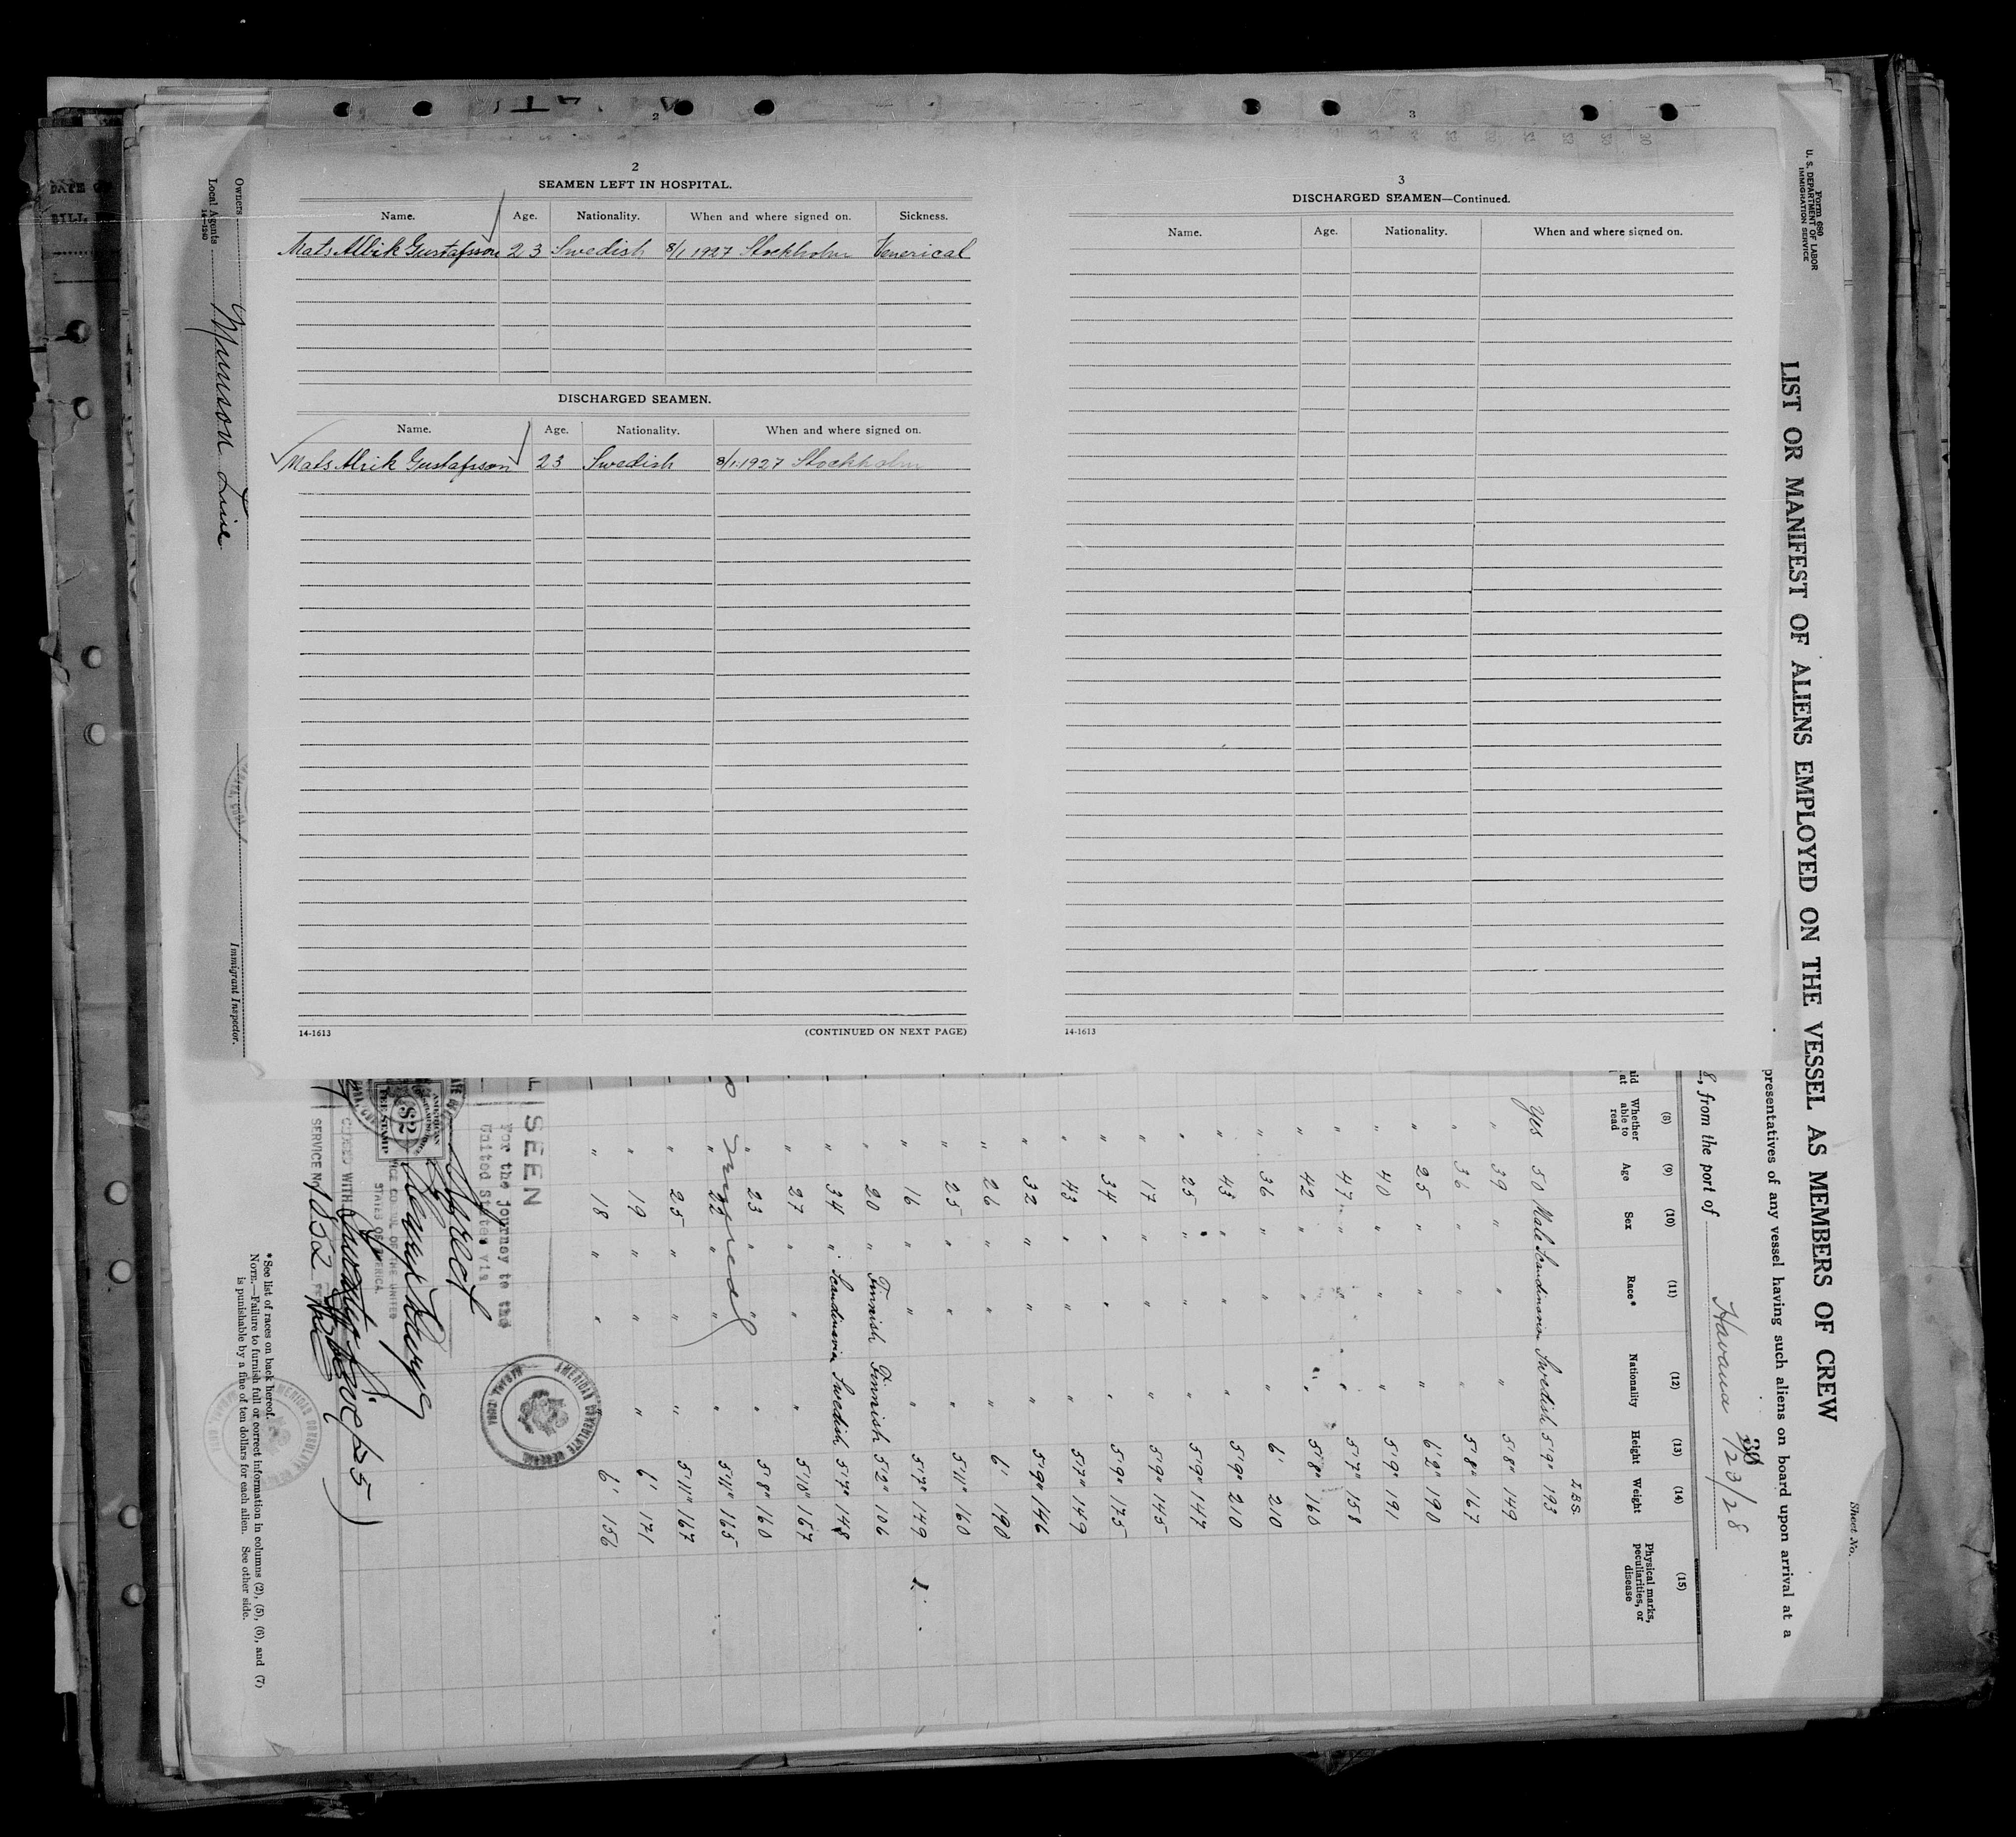 2
3
2
SEAMEN LEFT IN HOSPITAL.
Name. Age. Nationality. When and where signed on. Sickness.
Mats Albik Gustafsson 23 Swedish 8/1 1927 Stockholm Venerical
DISCHARGED SEAMEN.
Name. Age. Nationality. When and where signed on.
Mats Alrik Gustafsson 23 Swedish 8/1.1927 Stockholm
14-1613 (CONTINUED ON NEXT PAGE)
3
DISCHARGED SEAMEN—Continued.
Name. Age. Nationality. When and where signed on.
14-1613
Form 680
U. S. DEPARTMENT OF LABOR
IMMIGRATION SERVICE
Sheet No.
LIST OR MANIFEST OF ALIENS EMPLOYED ON THE VESSEL AS MEMBERS OF CREW
presentatives of any vessel having such aliens on board upon arrival at a
8, from the port of Havana 1/23/28
(8) (9) (10) (11) (12) (13) (14) (15)
Whether able to read Age Sex Race* Nationality Height Weight Physical marks, peculiarities, or disease
LBS.
Yes 50 Male Scandinavia Swedish 5'9" 193
" 39 " " " 5'8" 149
" 36 " " " 5'8" 167
" 25 " " " 6'2" 190
" 40 " " " 5'9" 191
" 47 " " " 5'7" 158
" 42 " " " 5'8" 160
" 36 " " " 6' 210
" 43 " " " 5'9" 210
" 25 " " " 5'9" 147
" 17 " " " 5'9" 145
" 34 " " " 5'9" 175
" 43 " " " 5'7" 149
" 32 " " " 5'9" 146
" 26 " " " 6' 190
" 25 " " " 5'11" 160
" 16 " " " 5'7" 149
" 20 " Finnish Finnish 5'2" 106
" 34 " Scandinavia Swedish 5'7" 148
" 27 " " " 5'10" 167
" 23 " " " 5'8" 160
" 22 " " " 5'11" 165
" 25 " " " 5'11" 167
" 19 " " " 6' 171
" 18 " " " 6' 156
SEEN
For the journey to the
United States via
AMERICAN CONSULATE GENERAL
HABANA, CUBA
VICE CONSUL OF THE UNITED
STATES OF AMERICA.
AMERICAN
$2
FEE STAMP
SERVICE No. 1052
*See list of races on back hereof.
NOTE.—Failure to furnish full or correct information in columns (2), (5), (6), and (7)
is punishable by a fine of ten dollars for each alien. See other side.
Immigrant Inspector.
Owners
Local Agents Munson Line
14-1240